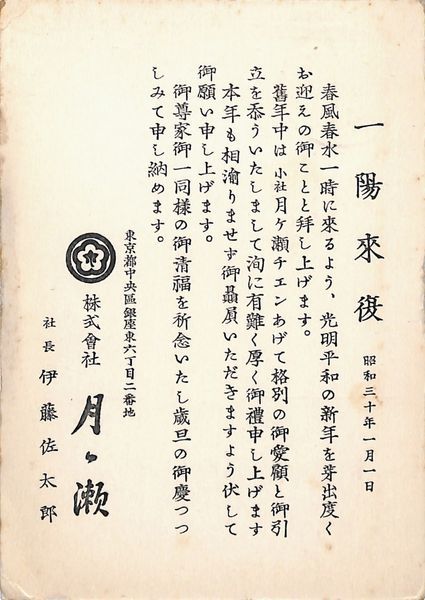 一陽来復
昭和三十年一月一日
春風春水一時に來るよう、光明平和の新年を芽出度く
お迎えの御ことと拜し上げます。
舊年中は小社月ヶ瀬チエンあげて格別の御愛顧と御引
立を忝ういたしまして洵に有難く厚く御禮申し上げます
本年も相渝りませず御贔屓いただきますよう伏して
御願い申し上げます。
御尊家御一同様の御清福を祈念いたし歳旦の御慶つつ
しみて申し納めます。
東京都中央區銀座東六丁目二番地
株式會社 月ヶ瀬
社長 伊藤佐太郎